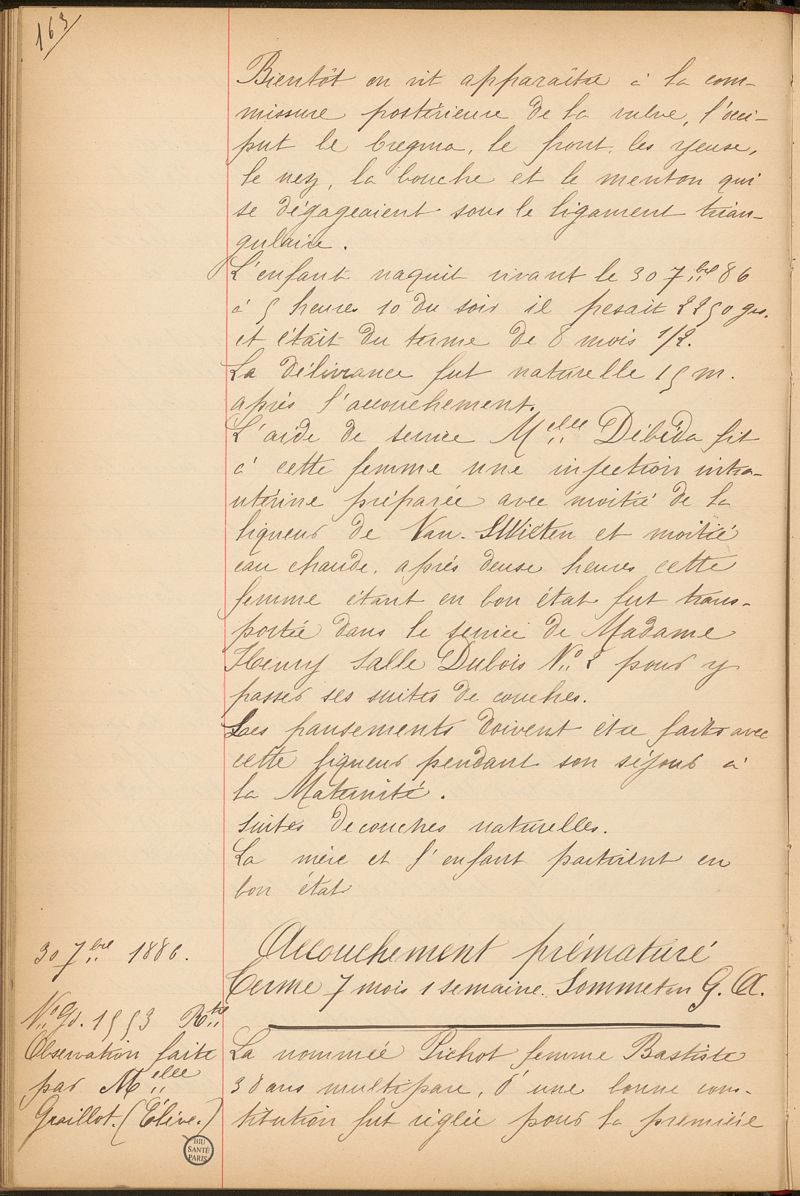 163
Bientôt on vit apparaître à la com-
missure postérieure de la vulve, l'occi-
put le bregma, le front, les yeuse,
le nez, la bouche et le menton qui
se dégageaient sous le ligament trian-
gulaire.
L'enfant naquit vivant le 30 7bre 86
à 5 heures 10 du soir il pesait 2250 gr.
et était du terme de 8 mois 1/2.
La délivrance fut naturelle 15 m.
après l'accouchement.
L'aide de service Melle Débéda fit
à cette femme une injection intra-
utérine préparée avec moitié de la
liqueur de Van-Swicten et moitié
eau chaude, après deuse heures cette
femme étant en bon état fut trans-
portée dans le service de Madame
Henry salle Dubois No 2 pour y
passer ses suites de couches.
Les pansements doivent être faits avec
cette liqueur pendant son séjour à
la Maternité.
Suites de couches naturelles.
La mère et l'enfant partirent en
bon état
30 7bre 1886.
Accouchement prématuré
Terme 7 mois 1 semaine. Sommet en G. A.
No Gd. 1553 Rte
Observation faite
par Melle
Graillot. (Élève.)
La nommée Pichot femme Bastiste
38 ans multipare, d'une bonne cons-
titution fut réglée pour la première
BIU
SANTÉ
PARIS